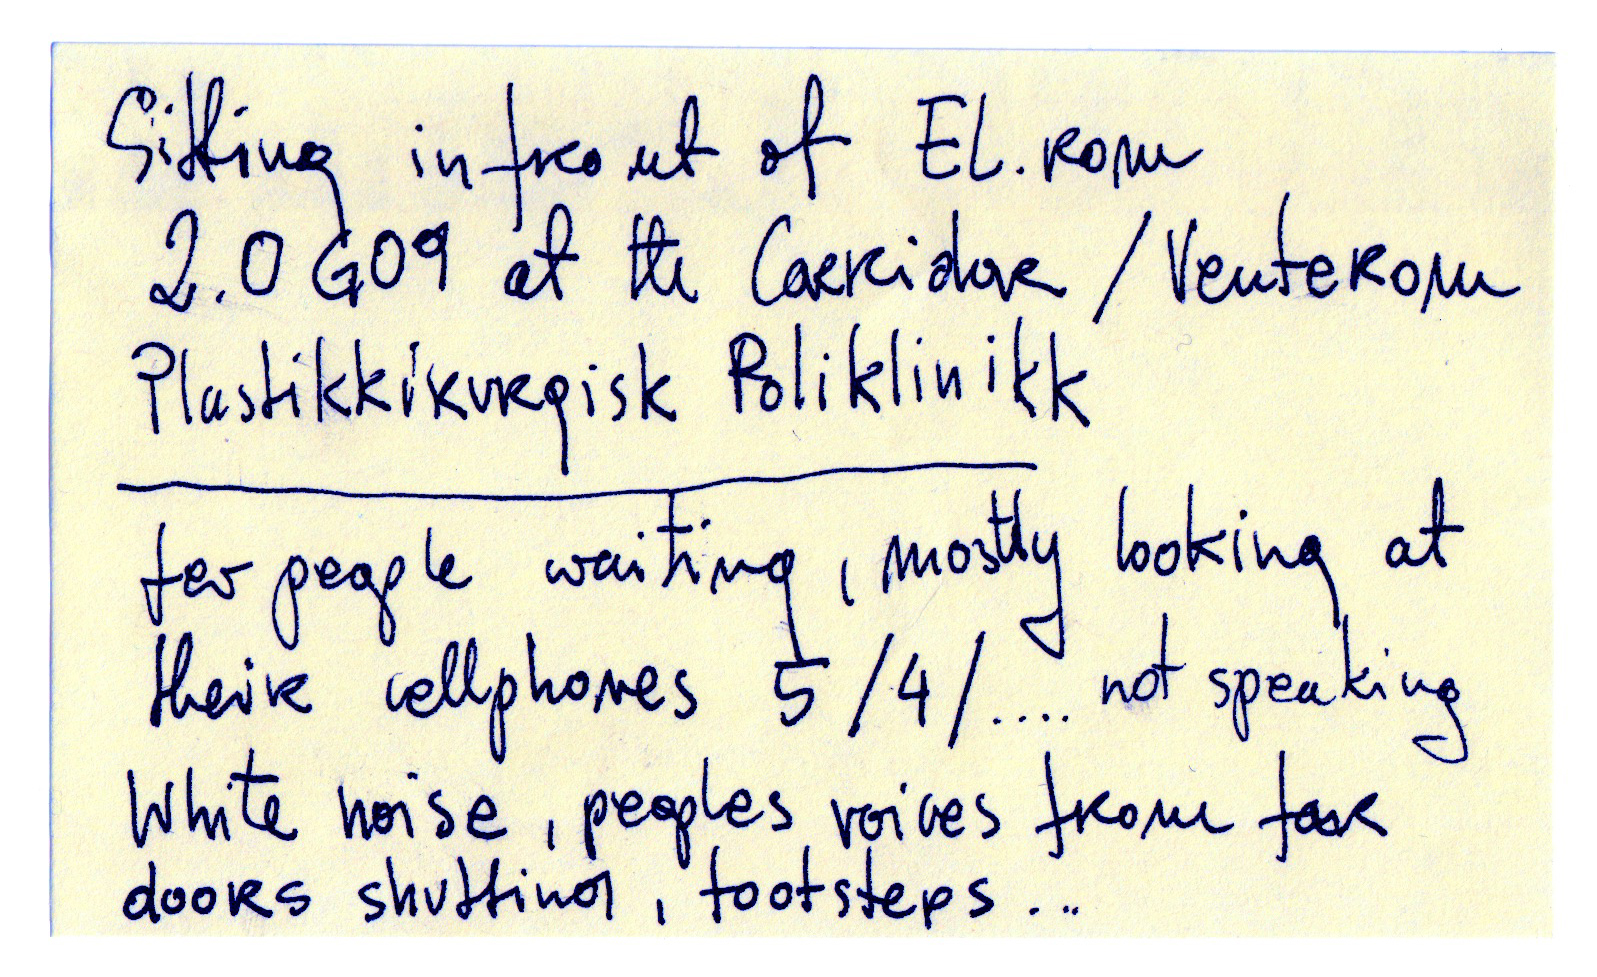 Sitting infront of EL.rom
2.0 G09 at the Corridor / Venterom
Plastikkirurgisk Poliklinikk
few people waiting, mostly looking at
their cellphones 5/4/.... not speaking
White noise, peoples voices from far
doors shutting, footsteps ...